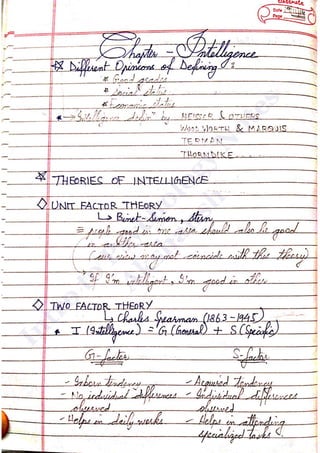 classmate
Date
Page
Chapter - Intelligence
Different Opinions of Defining
* Good grades
* Social status
* Economic status
* → "Intelligence by NEISSER & OTHERS
WOODWORTH & MARQUIS
TERMAN
THORNDIKE.....
THEORIES OF INTELLIGENCE
UNIT FACTOR THEORY
↳ Binet-Simon, Stern
= people good in one area should also be good
in another area
(our view may not coincide with this theory)
If I'm intelligent, I'm good in other
TWO FACTOR THEORY
↳ Charles Spearman (1863-1945)
* I (Intelligence) = G (General) + S (Specific)
G-factor S-factor
- Inborn tendency - Acquired tendency
- No individual differences - Individual differences
observed observed
- Helps in daily works - Helps in attending
specialized tasks.